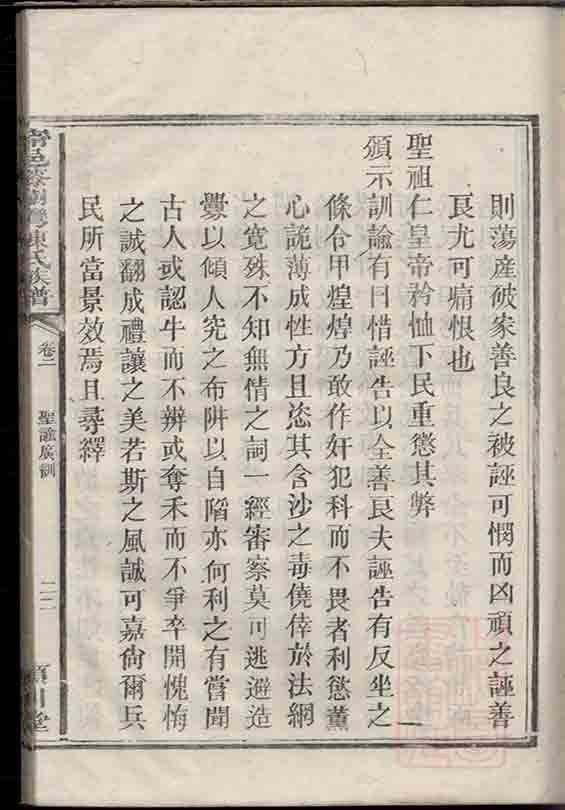 則蕩產破家善良之被誣可憫而凶頑之誣善
良尤可痛恨也
聖祖仁皇帝矜恤下民重懲其弊
頒示訓諭有曰惜誣告以全善良夫誣告有反坐之
條令甲煌煌乃敢作奸犯科而不畏者利慾薰
心詭薄成性方且恣其含沙之毒僥倖於法網
之寬殊不知無情之詞一經審察莫可逃避造
釁以傾人究之布阱以自陷亦何利之有嘗聞
古人或認牛而不辨或奪禾而不爭卒開愧悔
之誠翻成禮讓之美若斯之風誠可嘉尙爾兵
民所當景效焉且尋繹
氏族譜
卷二
聖諭廣訓
二二
川堂